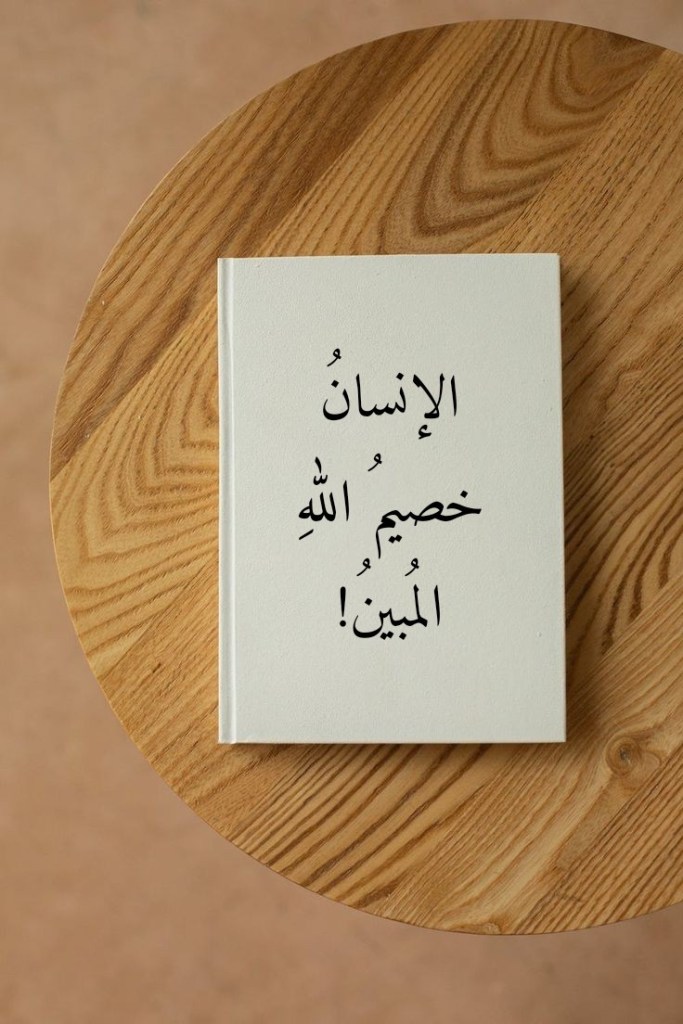 الإنسانُ
خصيمُ اللّٰهِ
المُبينُ!